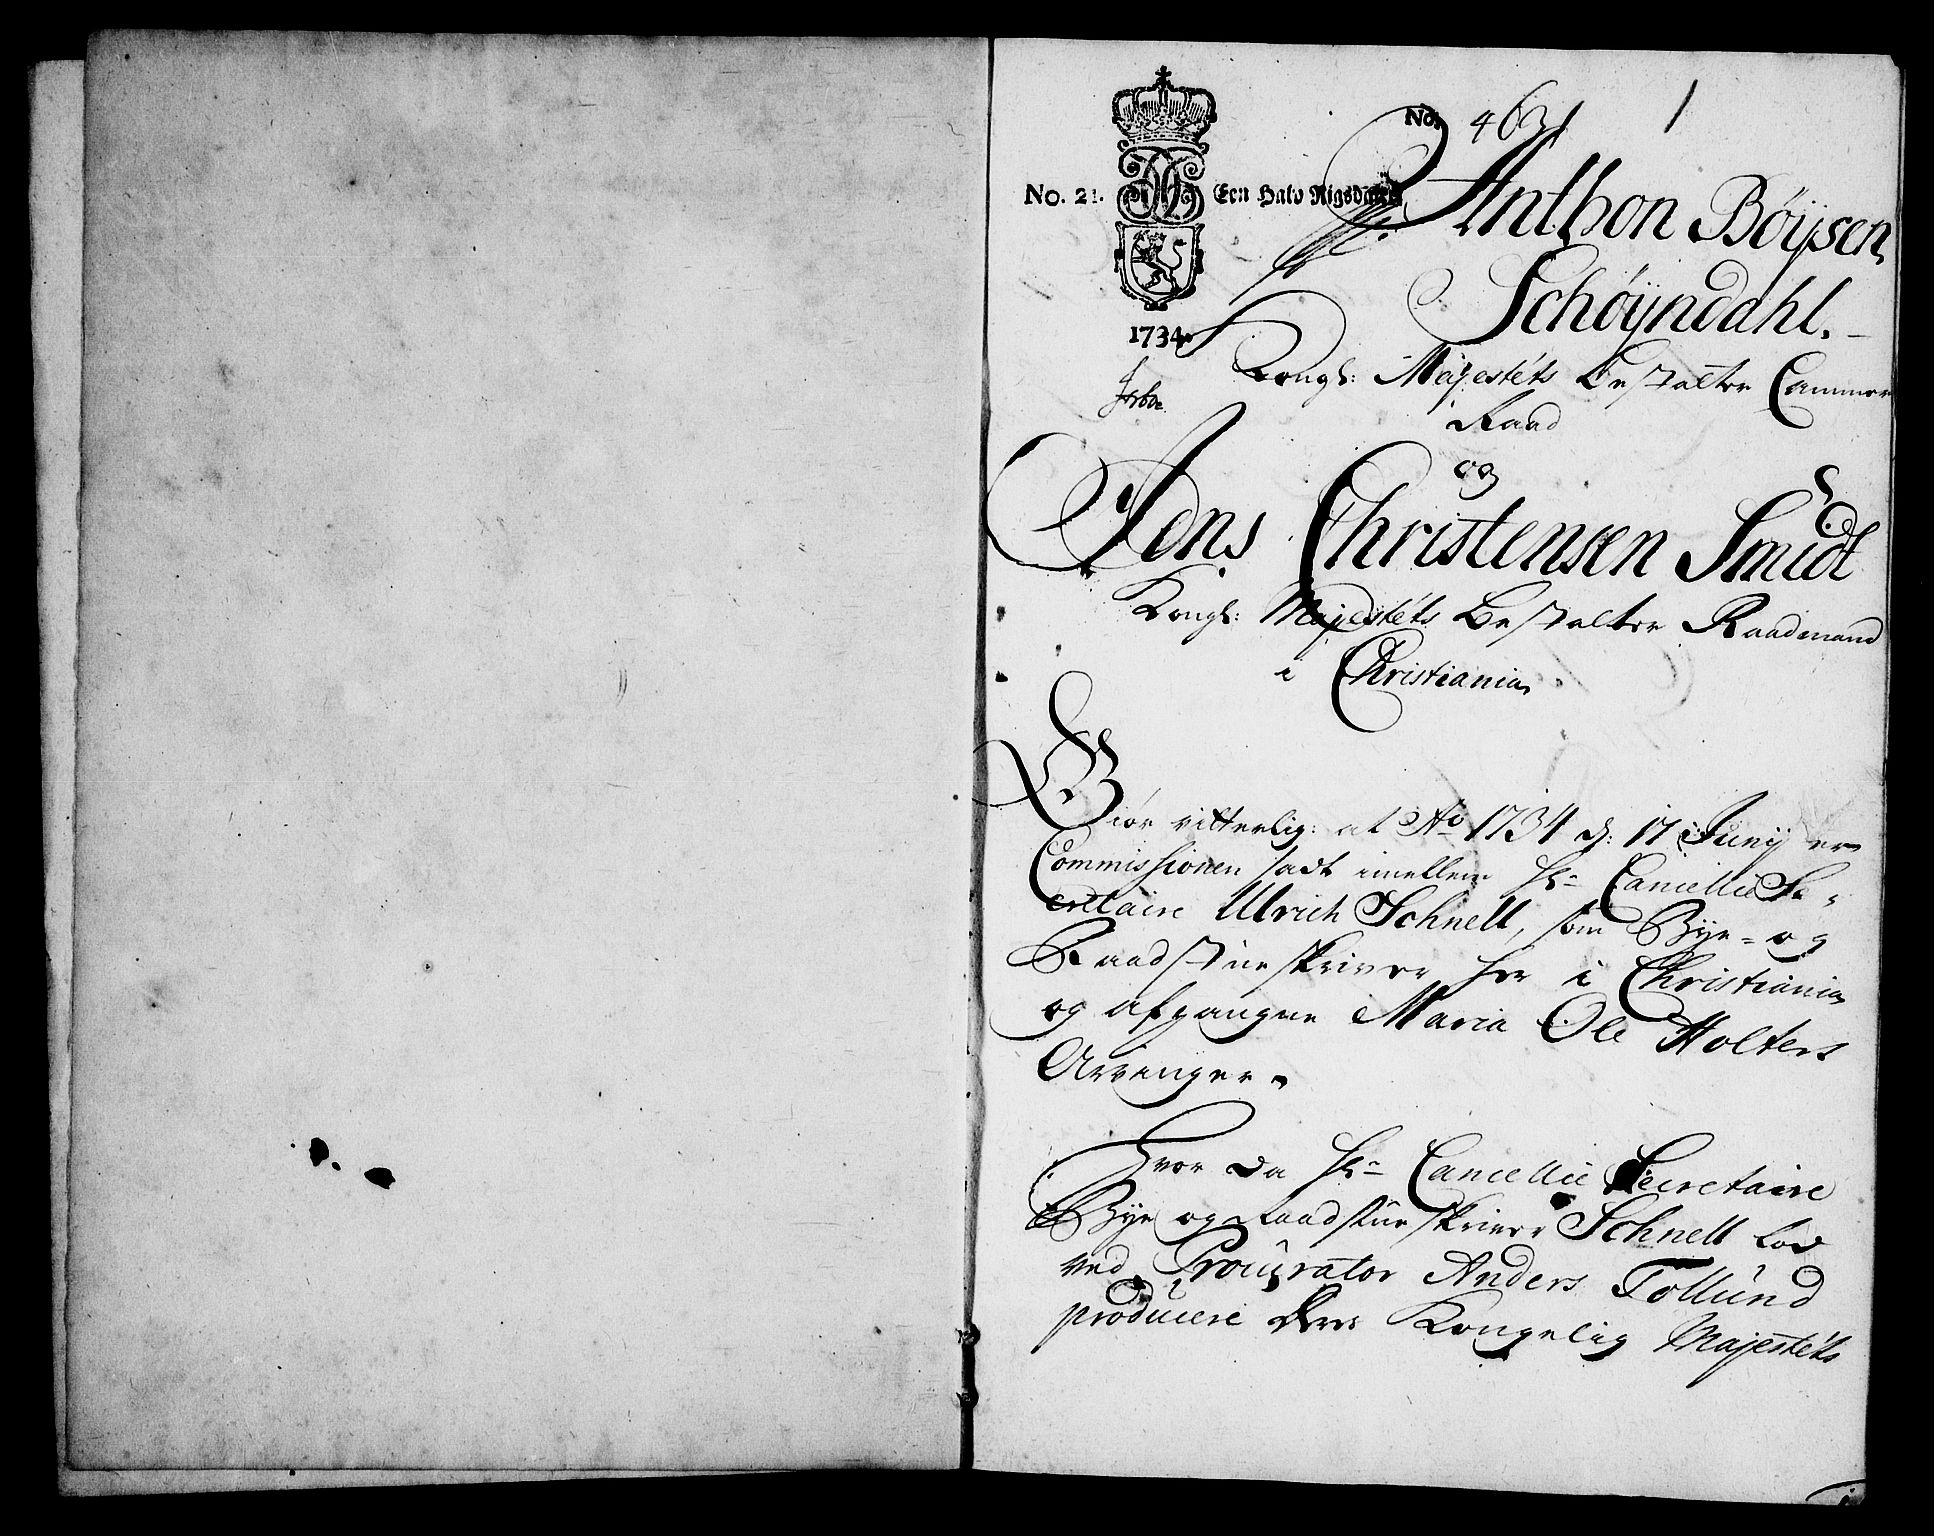 1
No. 4631
No. 21. Een Halv Rigsdaler
Anthon Böÿsen
Schöÿndahl.
1734
Kongl: Majestéts Bestalter Cammer
Raad
og
Jens Christensen Smidt
Kongl: Majestéts Bestalter Raadmand
i Christiania
Giör vitterlig: at Ao 1734 d: 17 Junÿ er
Commissionen sadt imellem Hr Cancellie Se-
cretaire Ulrich Schnell, som Bÿe- og
Raadstueskriver her i Christiania
og afgangne Maria Ole Holters
Arvinger.
Hvor da Hr Cancellie Secretaire
Bÿe og Raadstueskriver Schnell lod
ved Procurator Anders Tollund
producere Deres Kongelig Majestéts